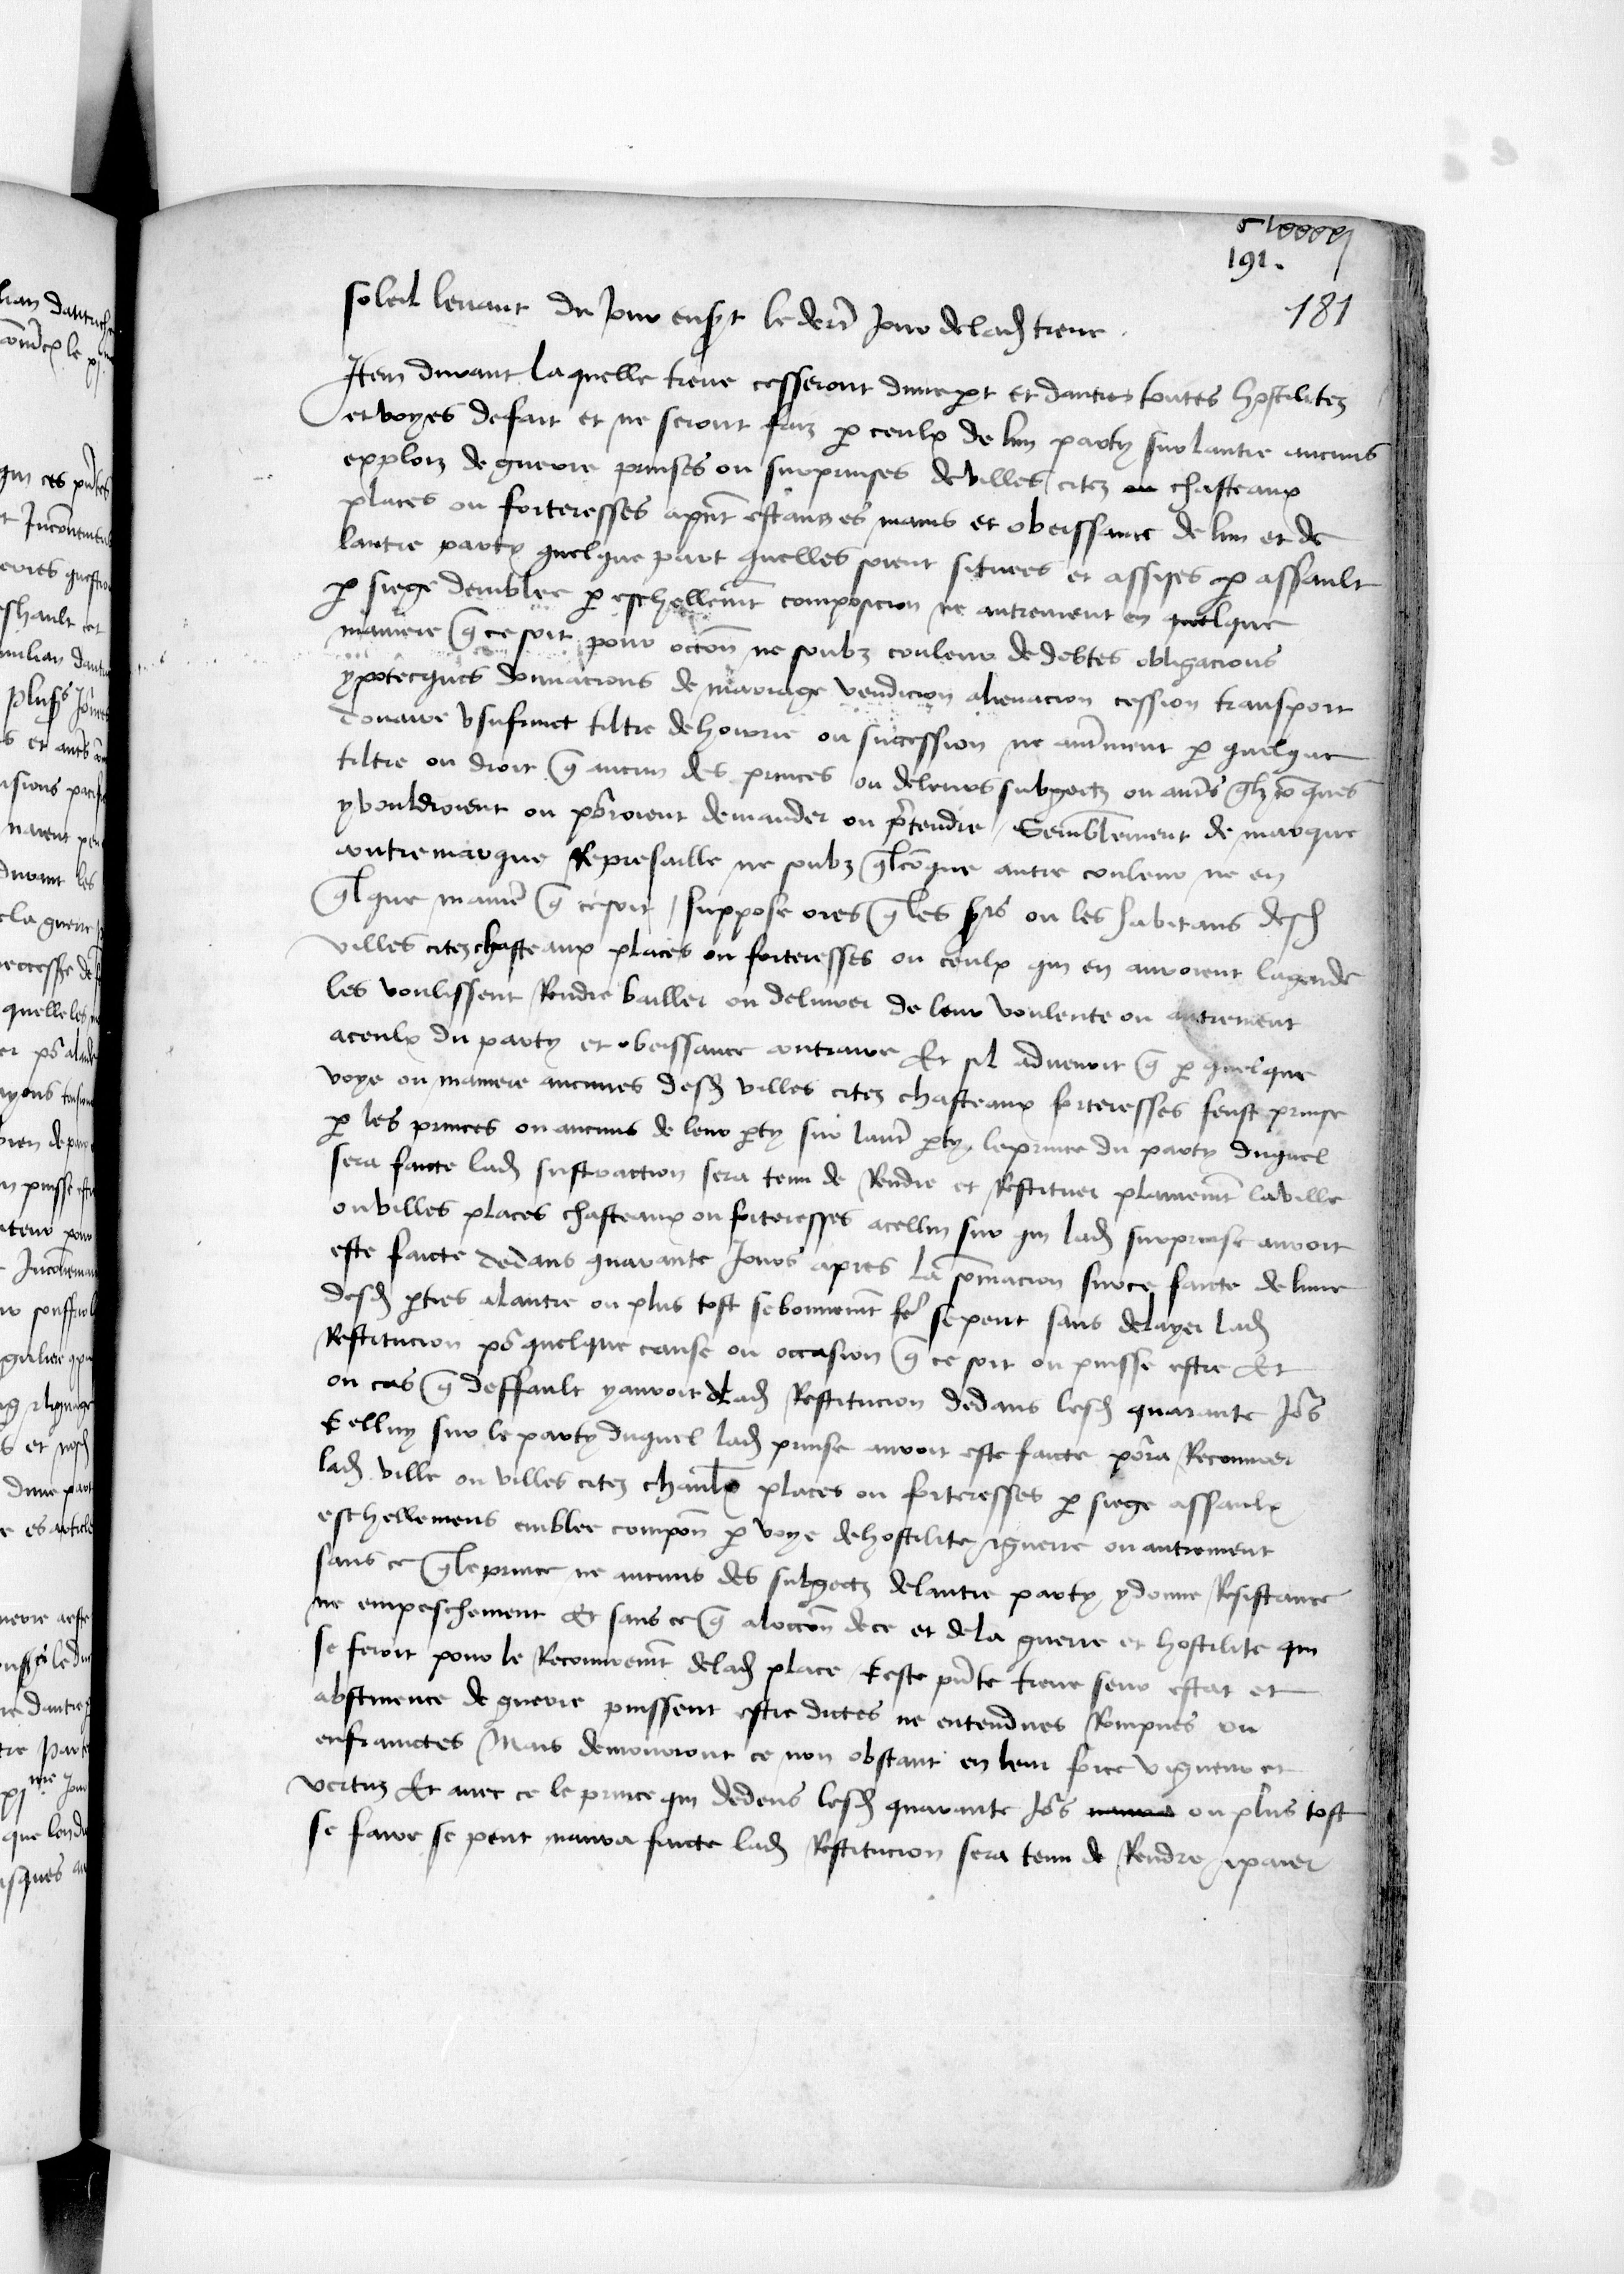 191.
181
soleil levant du jour ensyt le dern̄ jour de lad treve.
Item durant laquelle treve cesseront dune pt et dautre toutes hostilitez
et voyes defait et ne seront faiz p ceulx de lun party sur lautre aucuns
exploiz de guerre prinses ou surprinses de villes citez chasteaux
places ou forteresses apnt estans es mains et obeissance de lun et de
lautre party quelque part quelles soient situees et assises p assault
p siege demblee p eschellemt composicion ne autrement en quelque
maniere q ce soit pour occon ne soubz couleur de debtes obligacions
ypotecques donnacions de mariage vendicion alienacion cession transport
douaire usufruict tiltre de hoirie ou succession ne autrment p quelque
tiltre ou droit q aucun des princes ou deleurs subgectz ou aut's qlzconques
y vouldroient ou porroient demander ou p'tendre / Semblement de marque
contremarque Represaille ne soubz qlconque autre couleur ne en
qlque manie' q ce soit / suppose ores q les srs ou les habitans desd
villes citez chasteaux places ou forteresses ou ceulx qui en auroient lagarde
les voulissent Rendre bailler ou delivrer de leur voulente ou autrement
aceulx du party et obeissance contraire Et sil advenoit q p quelque
voye ou maniere aucunes desd villes citez chasteaux forteresses feust prinse
p les princes ou aucuns de leur pty sur laut' pty leprince du party duquel
sera faicte lad sustraction sera tenu de Rendre et Restituer plainemt laville
ou villes places chasteaux ou forteresses acelluy sur qui lad surprinse auroit
este faicte dedans quarante Jours apres la somacion surce faicte de lune
desd pties alautre ou plus tost sebonnemt fe' sepeut sans delayer lad
Restitucion po' quelque cause ou occasion q ce soit ou puisse estre Et
ou cas q deffault yauroit de lad Restitucion dedans lesd quarante Jo's
Celluy sur le party duquel lad prinse auroit este faicte po'ra Recouvrer
lad ville ou villes citez chaulx places ou forteresses p siege assaulx
eschellemens emblee compon p voye dehostilite & guerre ou autrement
sans ce q leprince ne aucuns des subgectz delautre party ydonne Resistance
ne empeschement Et sans ce q aloccon dece et dela guerre et hostilite qui
se feroit pour le Recouvremt delad place / Ceste pnte treve seur estat et
abstinence de guerre puissent estre dictes ne entendues Rompues ou
enfrainctes Mais demourront ce non obstant en leur force vigueur et
vertuz Et avec ce le prince qui dedens lesd quarante Jo's ou plus tost
se faire se peut naura faicte lad Restitucion sera tenu de Rendre & paier